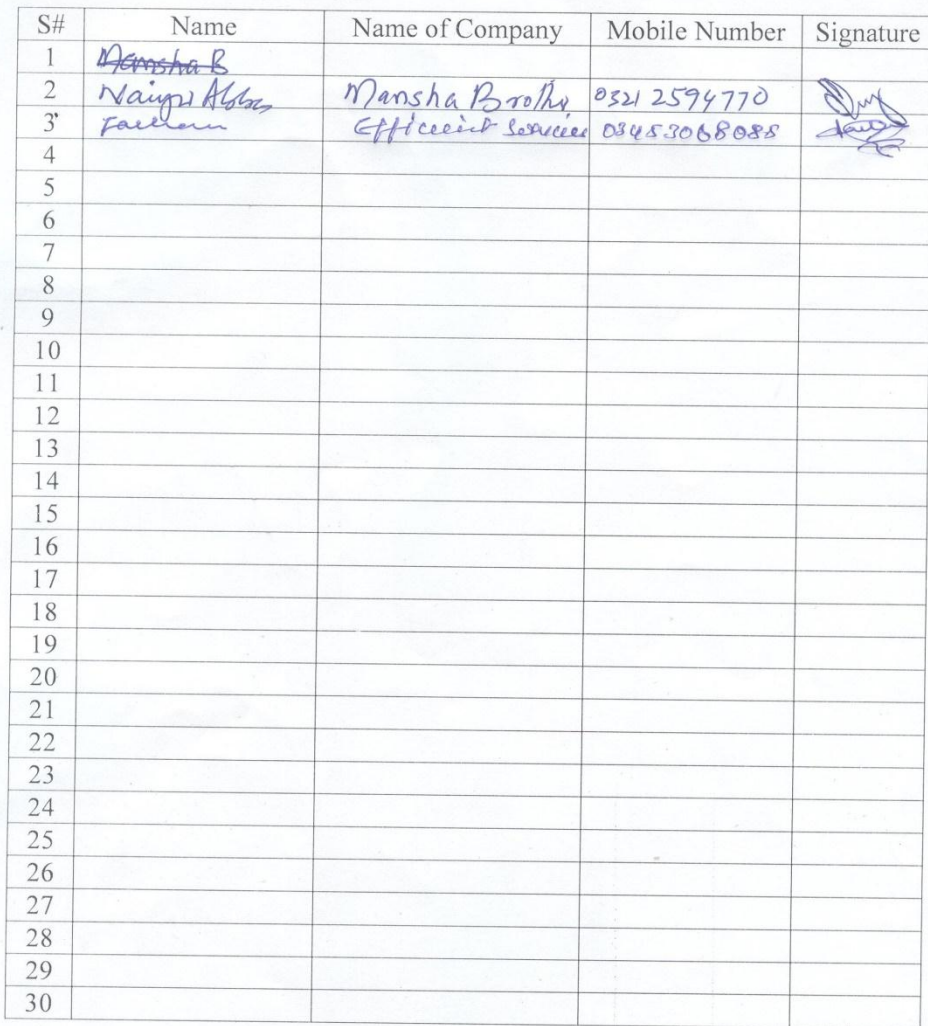 S# Name Name of Company Mobile Number Signature
1 Mansha B
2 Abbas Mansha Brothe 0321 2594770
3 Efficient Services 03453068088
4
5
6
7
8
9
10
11
12
13
14
15
16
17
18
19
20
21
22
23
24
25
26
27
28
29
30